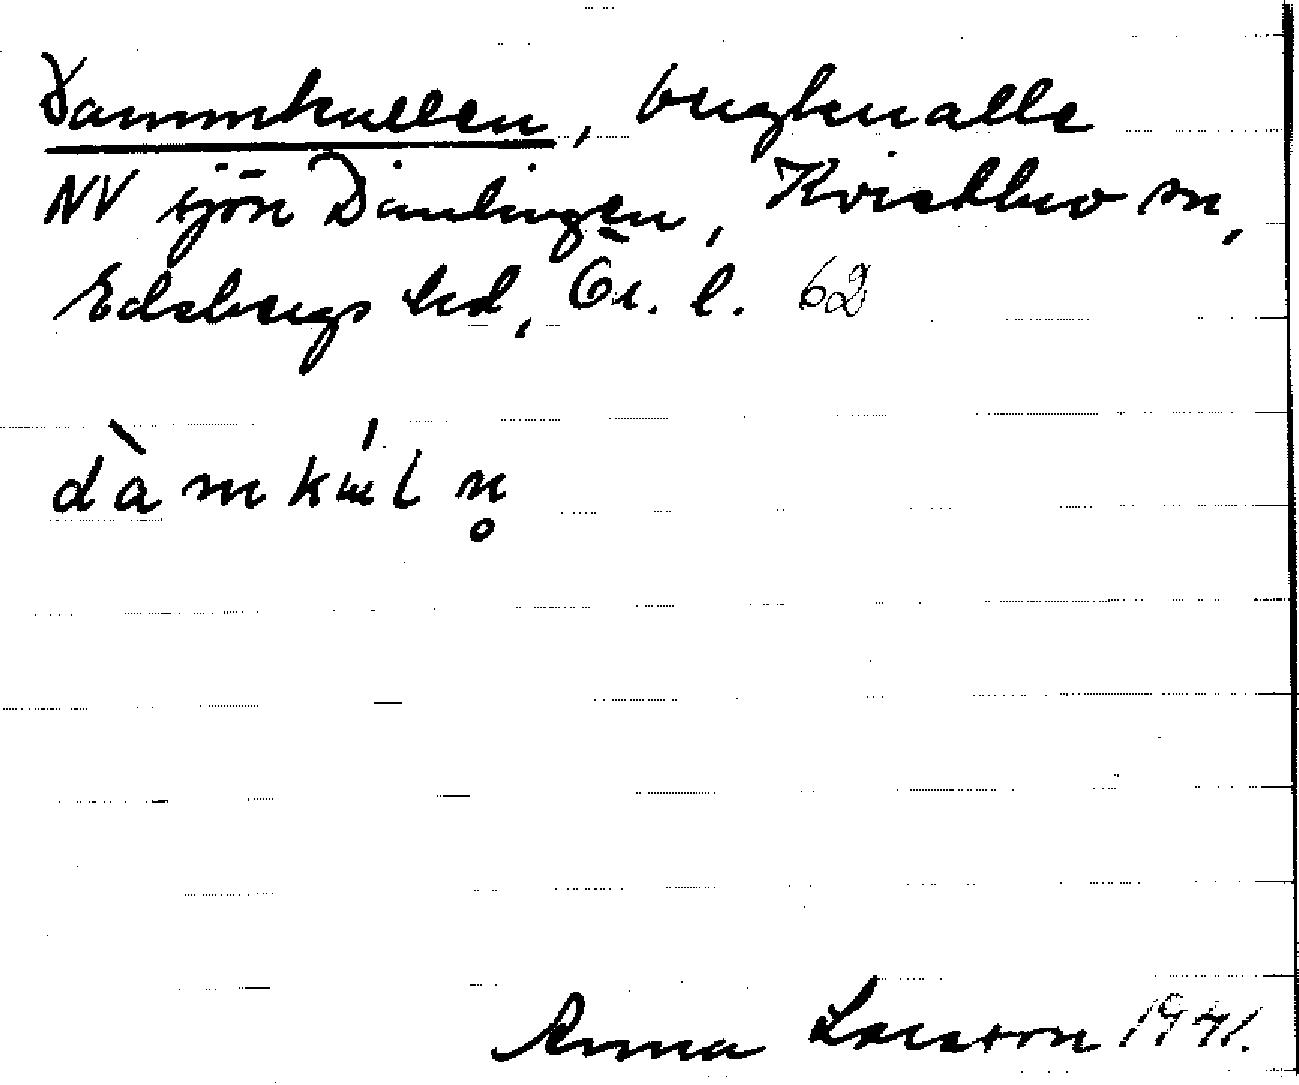 Dammkullen, bergknalle
NV sjön Däulingen, Kvistbro sn,
Edsbergs hd, Ör. l. 62
dàmkɯ́l n̥
Anna Larsson 1941.